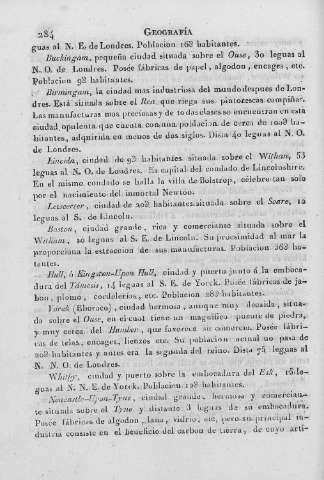 284 GEOGRAFÍA
guas al N. E. de Londres. Poblacion 16@ habitantes.
Buckingam, pequeña ciudad situada sobre el Ouse, 30 leguas al
N. O. de Londres. Posée fábricas de papel, algodon, encages, etc.
Poblacion 9@ habitantes.
Birmingam, la ciudad mas industriosa del mundo despues de Lon-
dres. Está situada sobre el Rea que riega sus pintorescas campiñas.
Las manufacturas mas preciosas y de todas clases se encuentran en esta
ciudad opulenta que cuenta con una poblacion de cerca de ha-
bitantes, adquirida en menos de dos siglos. Dista 40 leguas al N. O.
de Londres.
Lincoln, ciudad de 9@ habitantes situada sobre el Witham, 53
leguas al N. de Londres. Es capital del condado de Lincolnshire.
En el mismo condado se halla la villa de Bolstrop, célebre tan solo
por el nacimiento del inmortal Newton.
Leicerter, ciudad de 20@ habitantes situada sobre el Soare, 12
leguas al S. de Lincoln.
Boston, ciudad grande, rica y comerciante situada sobre el
Witham, 10 leguas al S. E. de Lincoln. Su procsimidad al mar la
proporciona la estraccion de sus manufacturas. Poblacion habi-
tantes.
Hull, ó Kingston-Upon Hull, ciudad y puerto junto á la emboca-
dura del Támesis, 14 leguas al S. E. de Yorck. Posée fábricas de ja-
bon, plomo, cordelerias, etc. Poblacion habitantes.
Yorck (Eboraco), ciudad hermosa, aunque muy decaida, situa-
da sobre el Ouse, en el cual tiene un magnífico puente de piedra,
y muy cerca del Humber, que favorece su comercio. Posée fábri-
cas de telas, encages, lienzos etc. Su poblacion actual no pasa de
20@ habitantes y antes era la segunda del reino. Dista 75 leguas al
N. N. O. de Londres.
Whitby, ciudad y puerto sobre la embocadura del Esk, 15 le-
guas al N. N. E. de Yorck. Poblacion habitantes.
Newcastle-Upon-Tyne, ciudad grande, hermosa y comercian-
te situada sobre el Tyne y distante 3 leguas de su embocadura.
Posée fábricas de algodon, lana, vidrio, etc, pero su principal in-
dustria consiste en el beneficio del carbon de tierra, de cuyo arti-